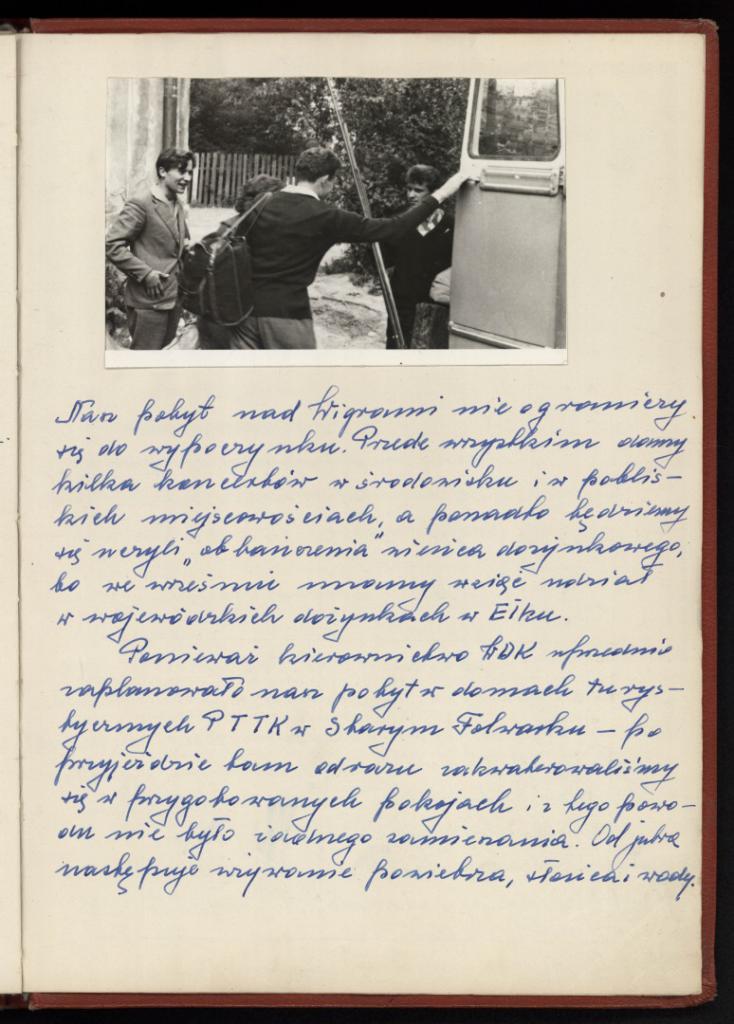 Nasz pobyt nad Wigrami nie ograniczy
się do wypoczynku. Przede wszystkim damy
kilka koncertów w środowisku i w poblis-
kich miejscowościach, a ponadto będziemy
się uczyli „obtańczenia" wieńca dożynkowego,
bo we wrześniu mamy wziąć udział
w wojewódzkich dożynkach w Ełku.
Ponieważ kierownictwo WDK uprzednio
zaplanowało nasz pobyt w domach turys-
tycznych PTTK w Starym Folwarku – po
przyjeździe tam od razu zakwaterowaliśmy
się w przygotowanych pokojach i z tego powo-
du nie było żadnego zamieszania. Od jutra
następuje używanie powietrza, słońca i wody.